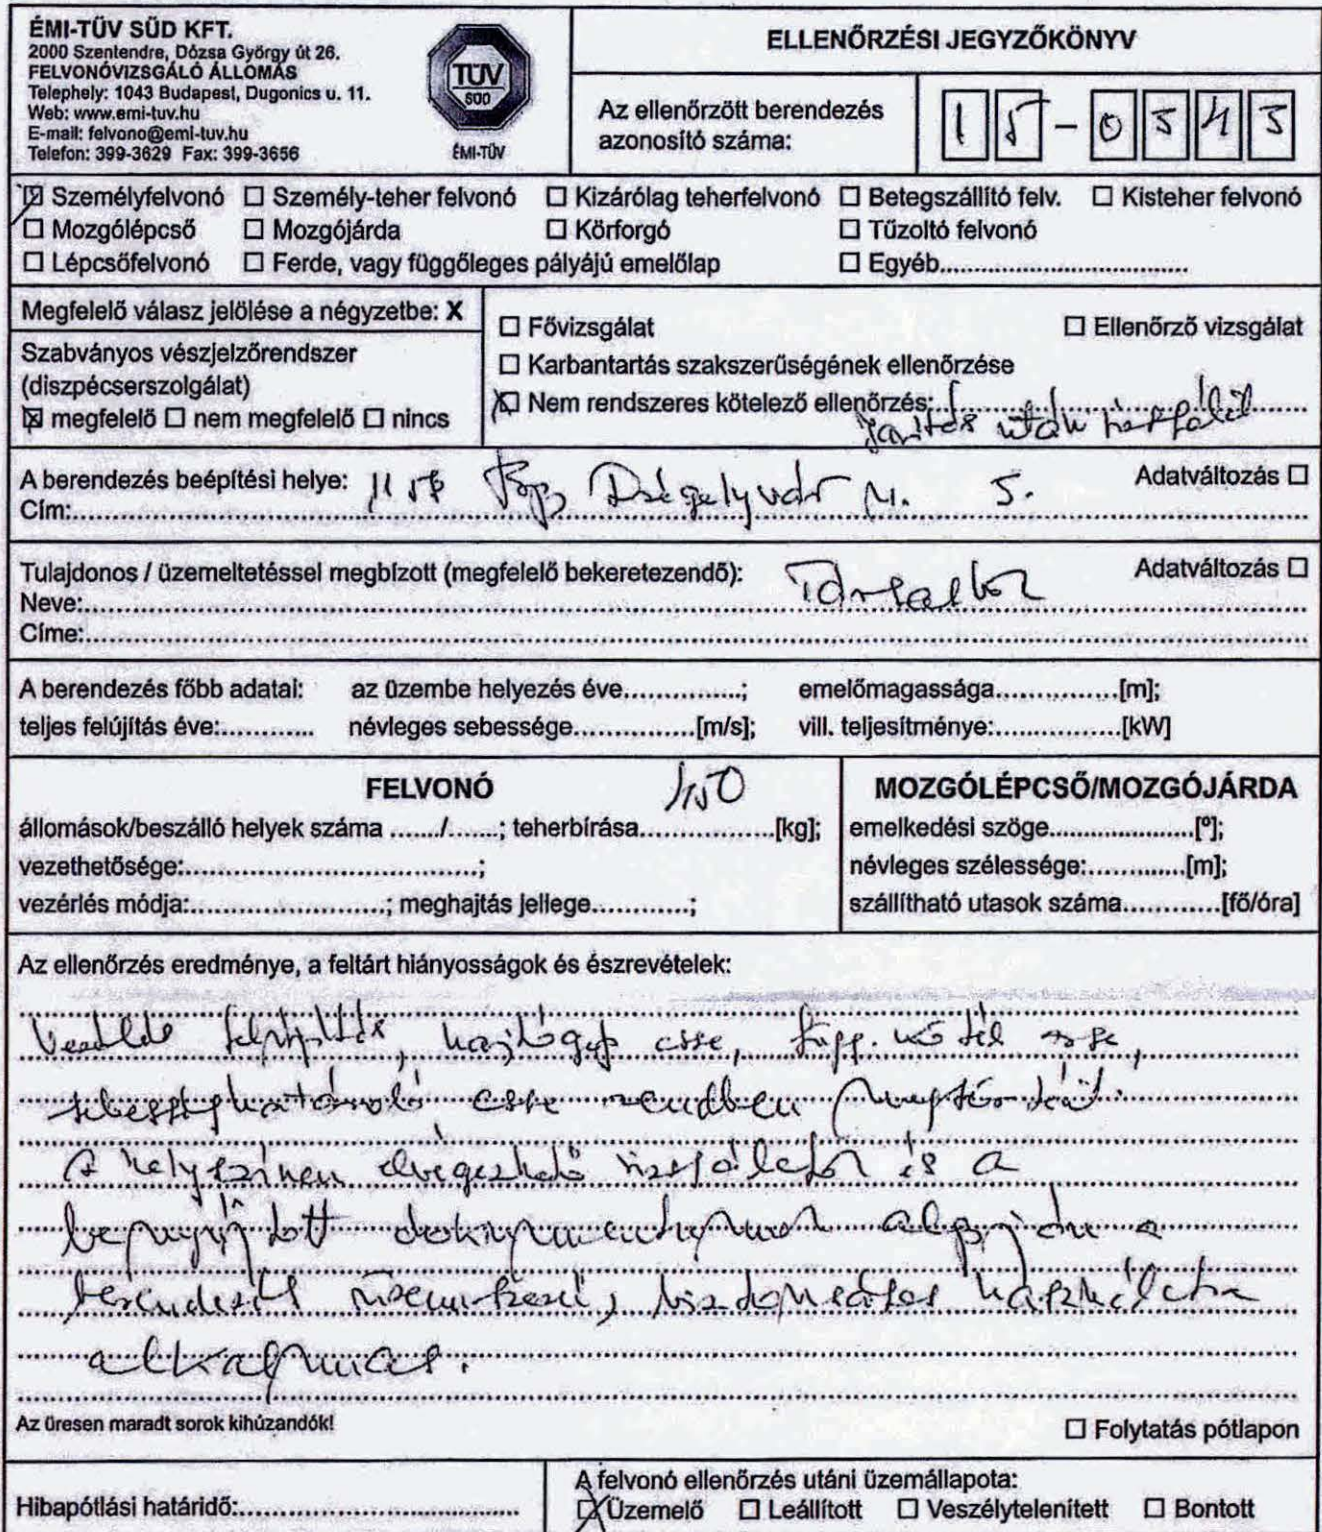 ÉMI-TÜV SÜD KFT.
2000 Szentendre, Dózsa György út 26.
FELVONÓVIZSGÁLÓ ÁLLOMÁS
Telephely: 1043 Budapest, Dugonics u. 11.
Web: www.emi-tuv.hu
E-mail: felvono@emi-tuv.hu
Telefon: 399-3629 Fax: 399-3656
TÜV
SÜD
ÉMI-TÜV
ELLENŐRZÉSI JEGYZŐKÖNYV
Az ellenőrzött berendezés
azonosító száma: 15-0543
☒ Személyfelvonó ☐ Személy-teher felvonó ☐ Kizárólag teherfelvonó ☐ Betegszállító felv. ☐ Kisteher felvonó
☐ Mozgólépcső ☐ Mozgójárda ☐ Körforgó ☐ Tűzoltó felvonó
☐ Lépcsőfelvonó ☐ Ferde, vagy függőleges pályájú emelőlap ☐ Egyéb
Megfelelő válasz jelölése a négyzetbe: X
Szabványos vészjelzőrendszer
(diszpécserszolgálat)
☒ megfelelő ☐ nem megfelelő ☐ nincs
☐ Fővizsgálat ☐ Ellenőrző vizsgálat
☐ Karbantartás szakszerűségének ellenőrzése
☒ Nem rendszeres kötelező ellenőrzés:
után
A berendezés beépítési helye: Adatváltozás ☐
Cím: Bp, Drégelyvár u. 5.
Tulajdonos / üzemeltetéssel megbízott (megfelelő bekeretezendő): Adatváltozás ☐
Neve: Társasház
Címe:
A berendezés főbb adatai: az üzembe helyezés éve; emelőmagassága [m];
teljes felújítás éve: névleges sebessége [m/s]; vill. teljesítménye: [kW]
FELVONÓ
állomások/beszálló helyek száma /; teherbírása [kg];
vezethetősége: ;
vezérlés módja: ; meghajtás jellege ;
MOZGÓLÉPCSŐ/MOZGÓJÁRDA
emelkedési szöge [º];
névleges szélessége: [m];
szállítható utasok száma [fő/óra]
Az ellenőrzés eredménye, a feltárt hiányosságok és észrevételek:
hajtógép csere, függ. kötél
sebességhatároló csere rendben megtörtént.
A helyszínen elvégezhető vizsgálatok és a
benyújtott dokumentumok alapján a
berendezés üzemkész, biztonságos használatra
alkalmas.
Az üresen maradt sorok kihúzandók!
☐ Folytatás pótlapon
Hibapótlási határidő:
A felvonó ellenőrzés utáni üzemállapota:
☒ Üzemelő ☐ Leállított ☐ Veszélytelenített ☐ Bontott